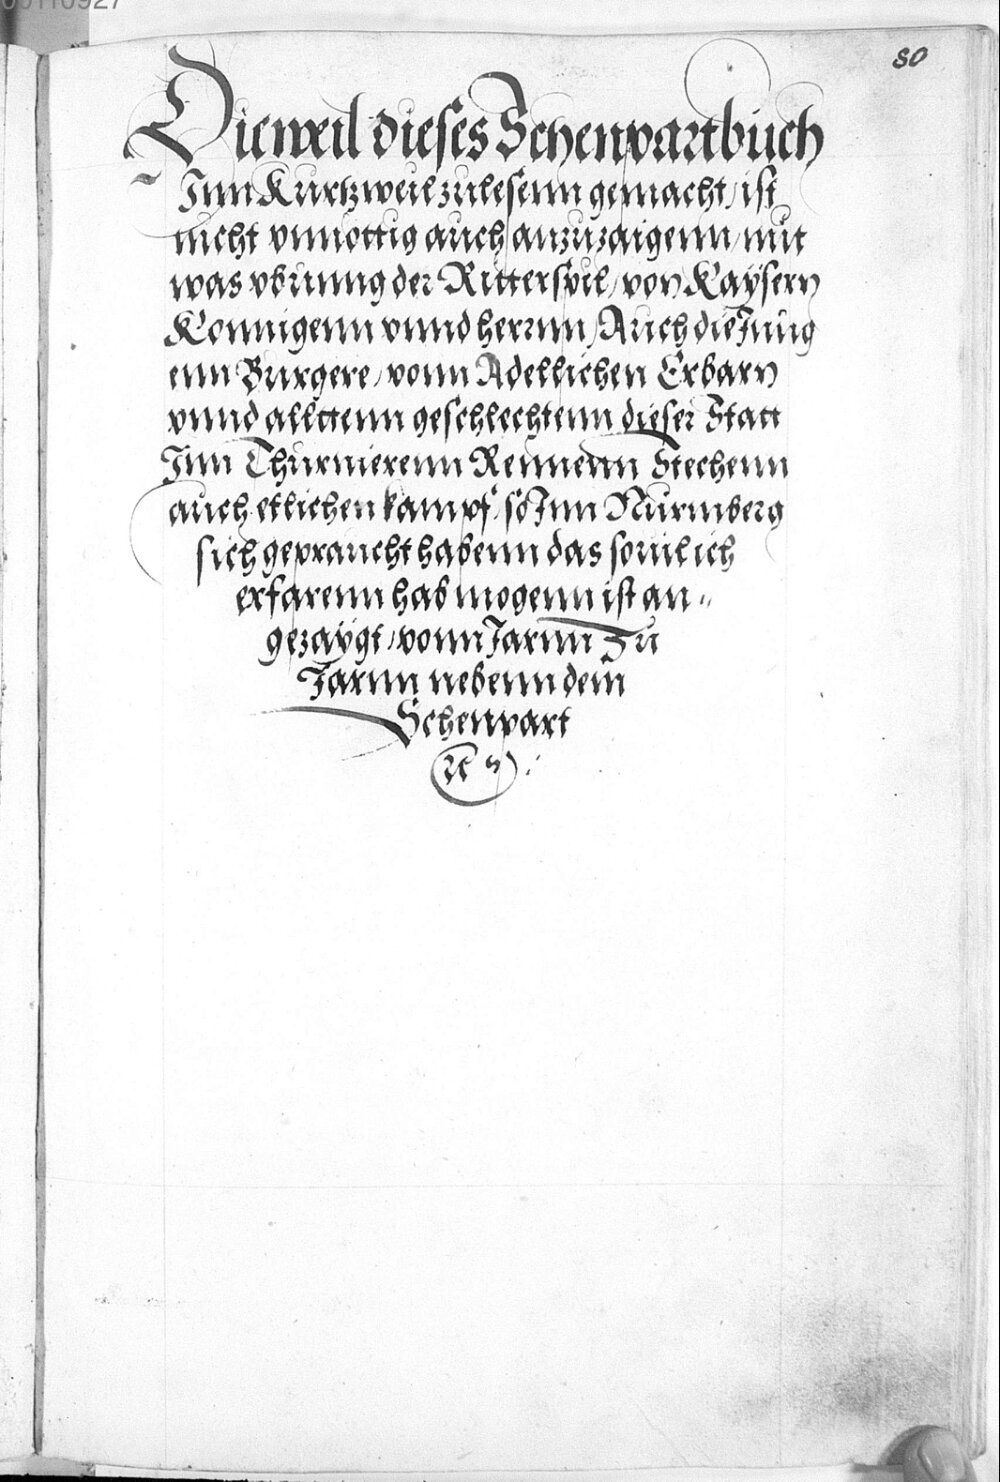 00110927
80
Dieweil dieses Schenpartbuch
Inn Kurtzweil zu lesenn gemacht / ist
nicht vnnottig auch anzuzaigenn / mit
was vbunng der Ritterspil / von Kaÿsern
Konnigenn vnnd herrnn / Auch die Jung
enn Burgere / vonn Adellichen Erbarn
vnnd allttenn geschlechtenn dieser Statt
Inn Thurnierenn Rennenn Stechenn
auch etlichen kampf / so Inn Nürmberg
sich gepraucht habenn das souil ich
erfarenn hab mogenn ist an "
gezaÿgt / vonn Jarnn Zu
Jarnn nebenn dem
Schenpart